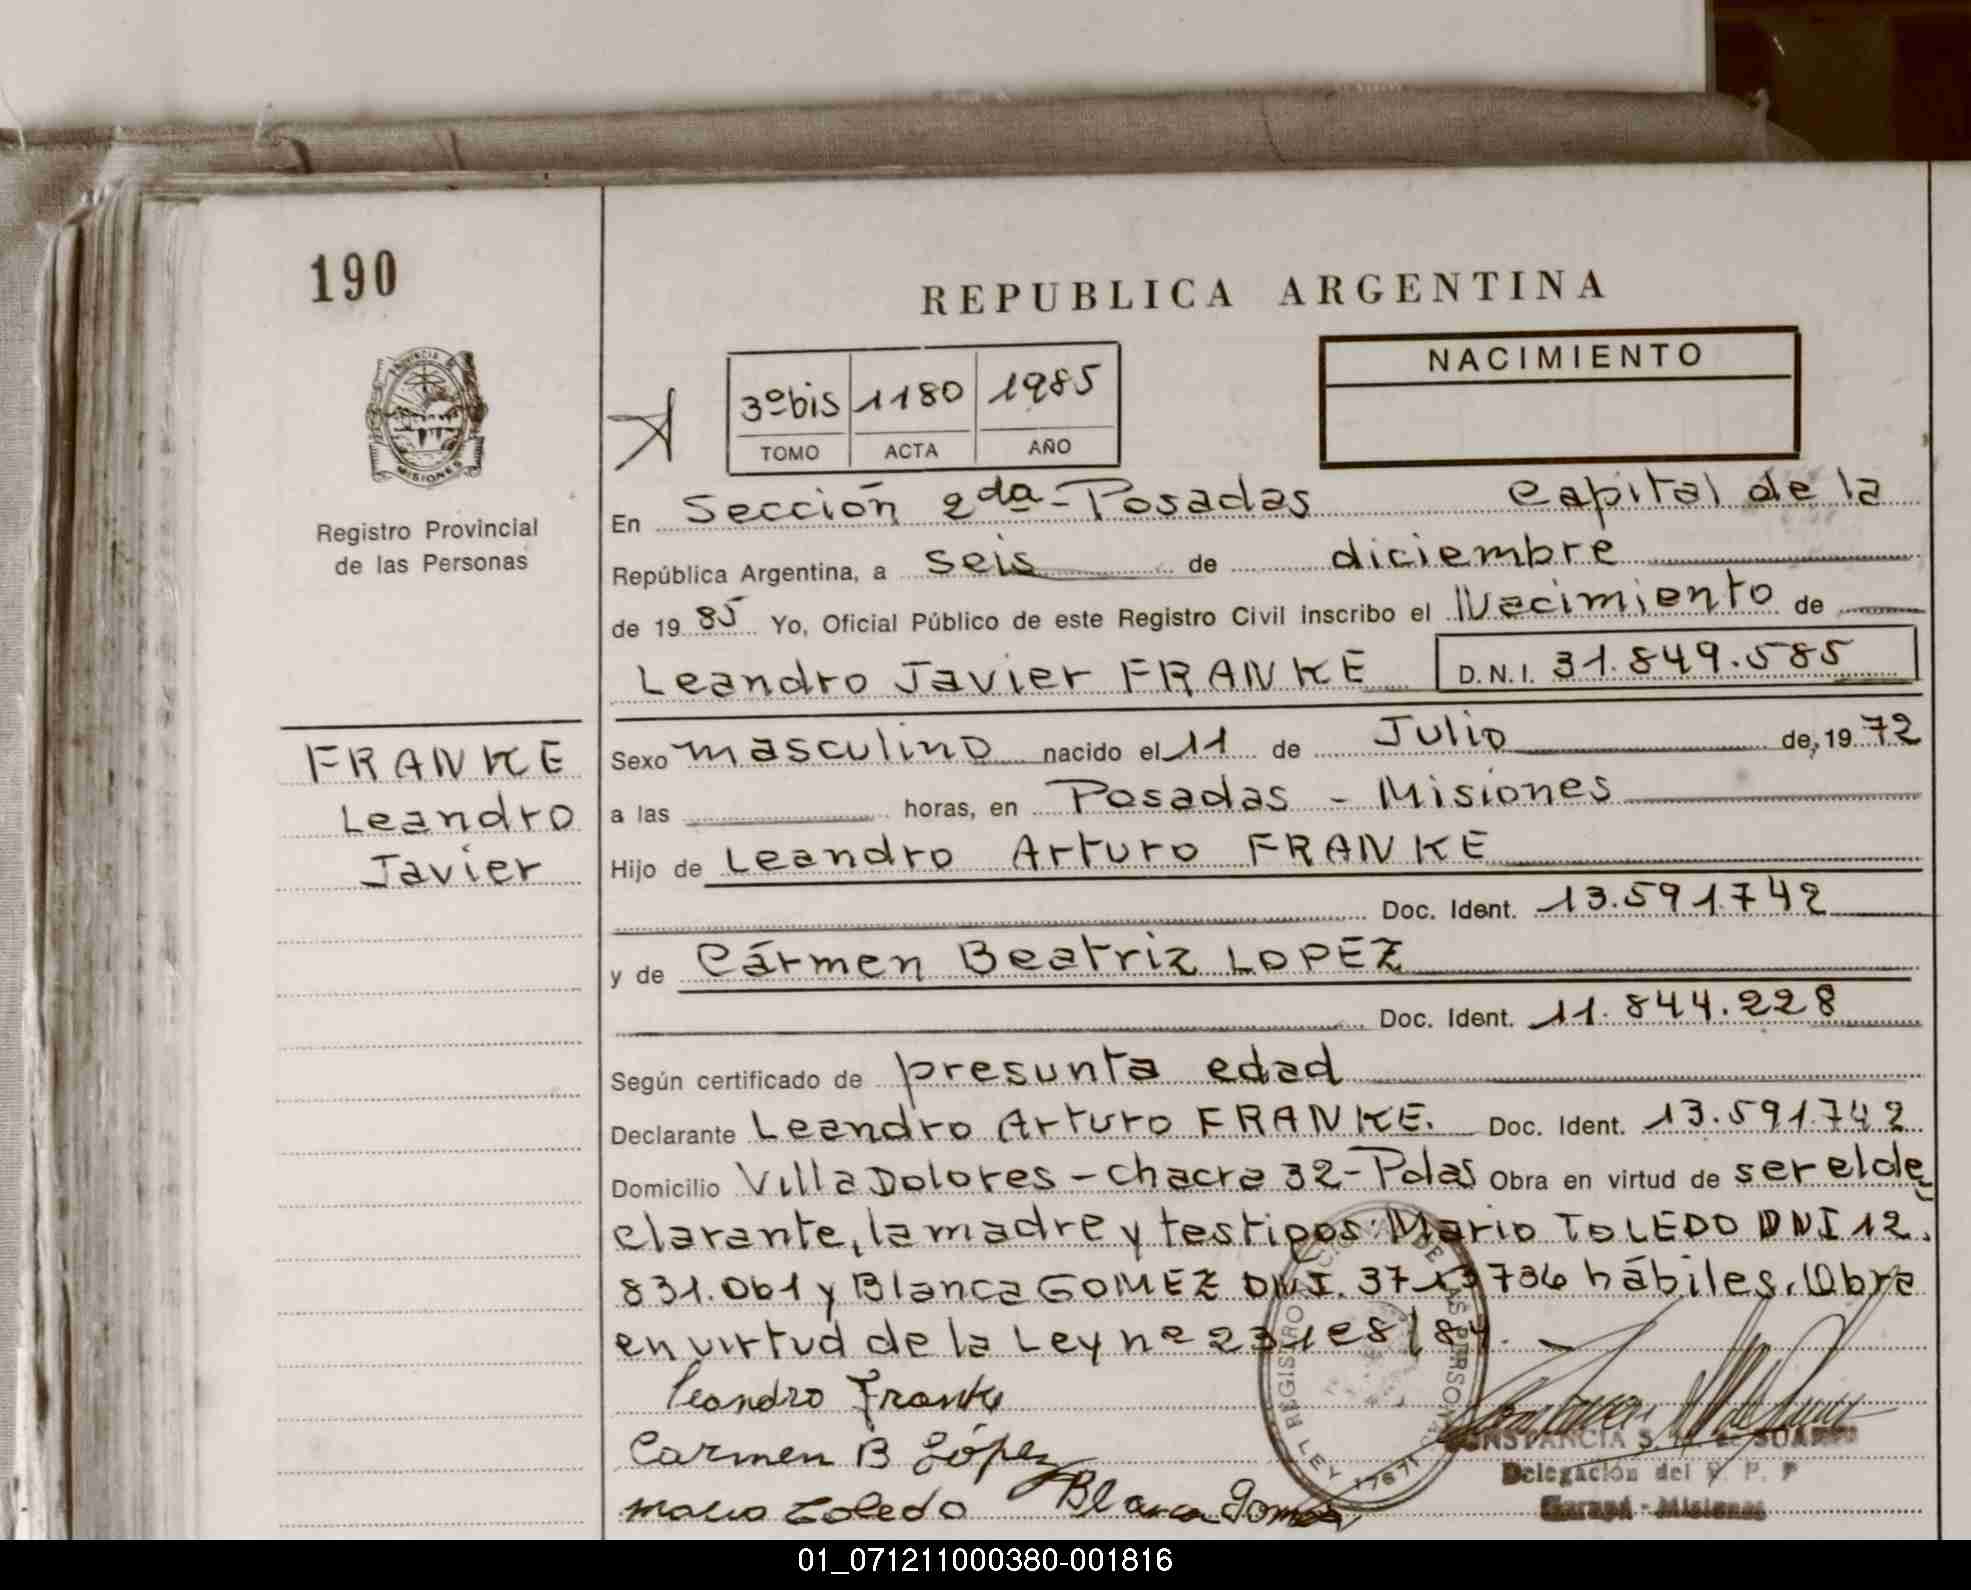 190
REPUBLICA ARGENTINA
PROVINCIA DE MISIONES
Registro Provincial
de las Personas
3º bis 1180 1985
TOMO ACTA AÑO
NACIMIENTO
En Sección 2da - Posadas Capital de la
República Argentina, a seis de diciembre
de 19 85 Yo, Oficial Público de este Registro Civil inscribo el Nacimiento de
Leandro Javier FRANKE D.N.I. 31.849.585
FRANKE
Leandro
Javier
Sexo masculino nacido el 11 de Julio de, 19 72
a las horas, en Posadas - Misiones
Hijo de Leandro Arturo FRANKE
Doc. Ident. 13.591.742
y de Cármen Beatriz LOPEZ
Doc. Ident. 11.844.228
Según certificado de presunta edad
Declarante Leandro Arturo FRANKE. Doc. Ident. 13.591.742
Domicilio Villa Dolores - chacra 32 - Pdas Obra en virtud de ser el de
clarante, la madre y testigos: Mario TOLEDO DNI 12.
831.061 y Blanca GOMEZ DNI. hábiles. Obra
en virtud de la Ley nº
Leandro Franke
Carmen B López
Mario Toledo Blanca Gomez
REGISTRO NACIONAL DE LAS PERSONAS LEY 17671
CONSTANCIA S. DE SUAREZ
Delegación del R. P. P
Garupá - Misiones
01_071211000380-001816